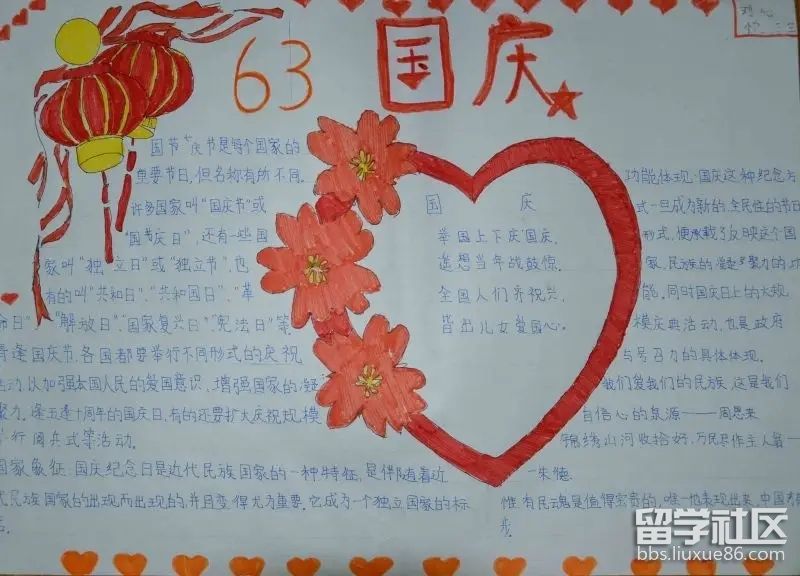 63 国庆
国节"庆节是每个国家的
重要节日,但名称有所不同。
许多国家叫"国庆节"或
"国庆日",还有一些国
家叫"独立日"或"独立节",也
有的叫"共和日"、"共和国日"、"革
命日"、"解放日"、"国家复兴日"、"宪法日"等
逢国庆节,各国都要举行不同形式的庆祝
活动,以加强本国人民的爱国意识,增强国家的凝
聚力。逢五逢十周年的国庆日,有的还要扩大庆祝规模
行阅兵式等活动。
国家象征:国庆纪念日是近代民族国家的一种特征,是伴随着近
代民族国家的出现而出现的,并且变得尤为重要。它成为一个独立国家的标
国 庆
举国上下庆国庆,
遥想当年战鼓惊。
全国人们齐祝兴,
皆出儿女爱国心。
功能体现:国庆这种纪念方
式一旦成为新的、全民性的节日
形式,便承载了反映这个国
家、民族的凝聚力的功
能。同时国庆日上的大规
模庆典活动,也是政府
与号召力的具体体现。
我们爱我们的民族,这是我们
自信心的泉源——周恩来
锦绣山河收拾好,万民尽作主人翁——
—朱德
惟有民魂是值得宝贵的,惟一他表现出来,中国才有
步。
留学社区
bbs.liuxue86.com